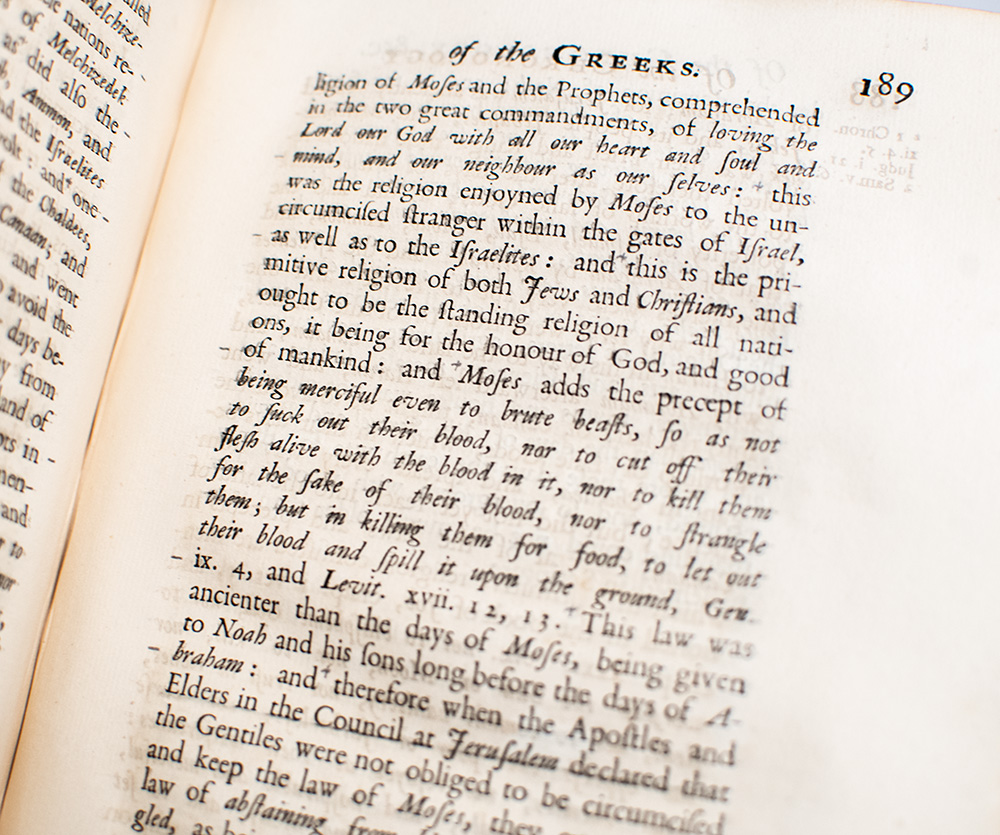 Melchize-
nations re-
of Melchizedek
as did alſo the
Ammon, and
the Iſraelites
volt: and one-
the Chaldees,
Canaan; and
and went
avoid the
days be-
from
and of
in-
men-
and
to
of the GREEKS. 189
ligion of Moſes and the Prophets, comprehended
in the two great commandments, of loving the
Lord our God with all our heart and ſoul and
mind, and our neighbour as our ſelves: + this
was the religion enjoyned by Moſes to the un-
circumciſed ſtranger within the gates of Iſrael,
as well as to the Iſraelites: and + this is the pri-
mitive religion of both Jews and Chriſtians, and
ought to be the ſtanding religion of all nati-
ons, it being for the honour of God, and good
of mankind: and + Moſes adds the precept of
being merciful even to brute beaſts, ſo as not
to ſuck out their blood, nor to cut off their
fleſh alive with the blood in it, nor to kill them
for the ſake of their blood, nor to ſtrangle
them; but in killing them for food, to let out
their blood and ſpill it upon the ground, Gen.
ix. 4, and Levit. xvii. 12, 13. + This law was
ancienter than the days of Moſes, being given
to Noah and his ſons long before the days of A-
braham: and + therefore when the Apoſtles and
Elders in the Council at Jeruſalem declared that
the Gentiles were not obliged to be circumciſed
and keep the law of Moſes, they
law of abſtaining from
gled, as